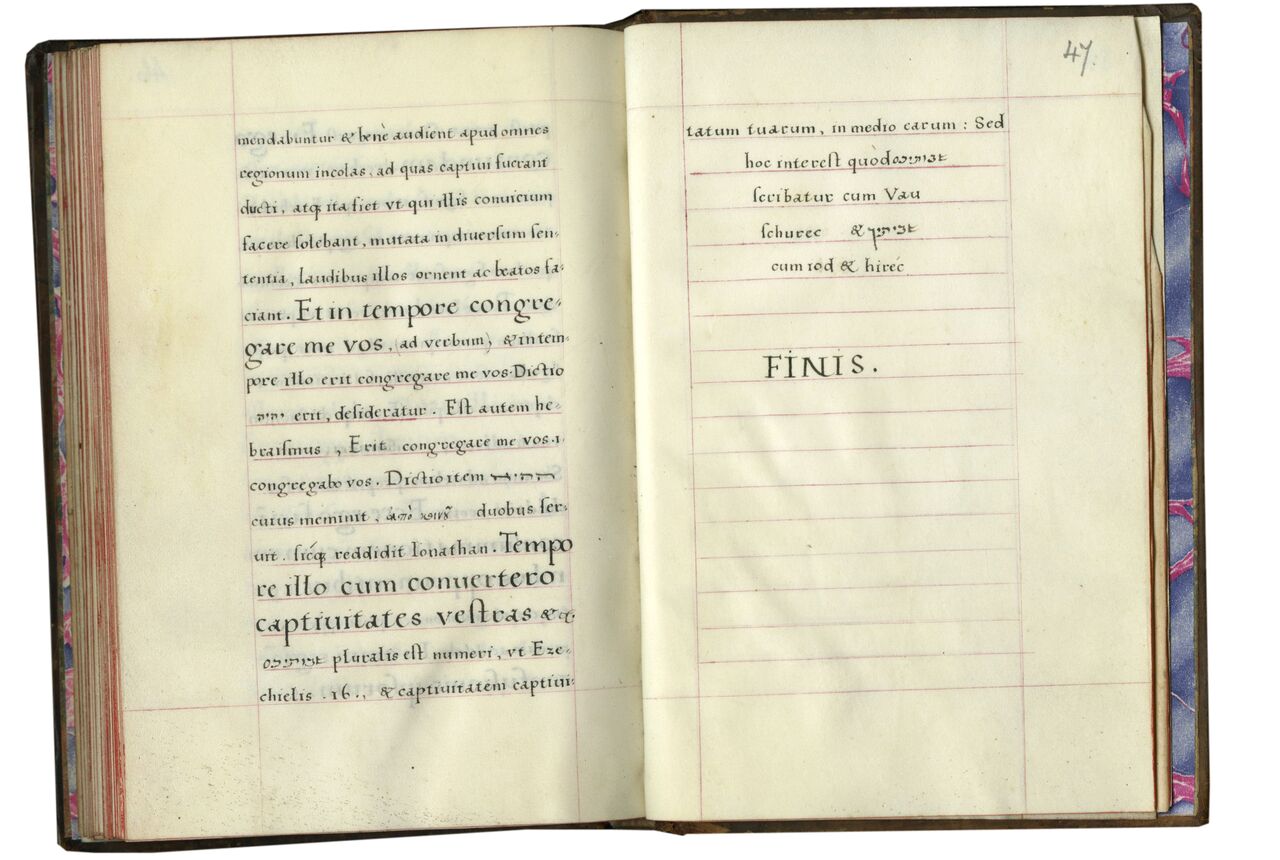 mendabuntur & benè audient apud omnes
regionum incolas, ad quas captiui fuerant
ducti, atq; ita fiet vt qui illis conuicium
facere solebant, mutata in diuersum sen-
tentia, laudibus illos ornent ac beatos fa-
ciant. Et in tempore congre-
gare me vos, (ad verbum) & in tem-
pore illo erit congregare me vos. Dictio
יהיה erit, desideratur. Est autem he-
braismus, Erit congregare me vos .i.
congregabo vos. Dictio item
cuius meminit, duobus ser-
uit. sicq; reddidit Ionathan. Tempo
re illo cum conuertero
captiuitates vestras &c.
שבותיכם pluralis est numeri, vt Eze-
chielis .16., & captiuitatem captiui-
47.
tatum tuarum, in medio earum : Sed
hoc interest quòd שבותיכם
scribatur cum Vau
schurec & שביתיך
cum iod & hiréc
FINIS.